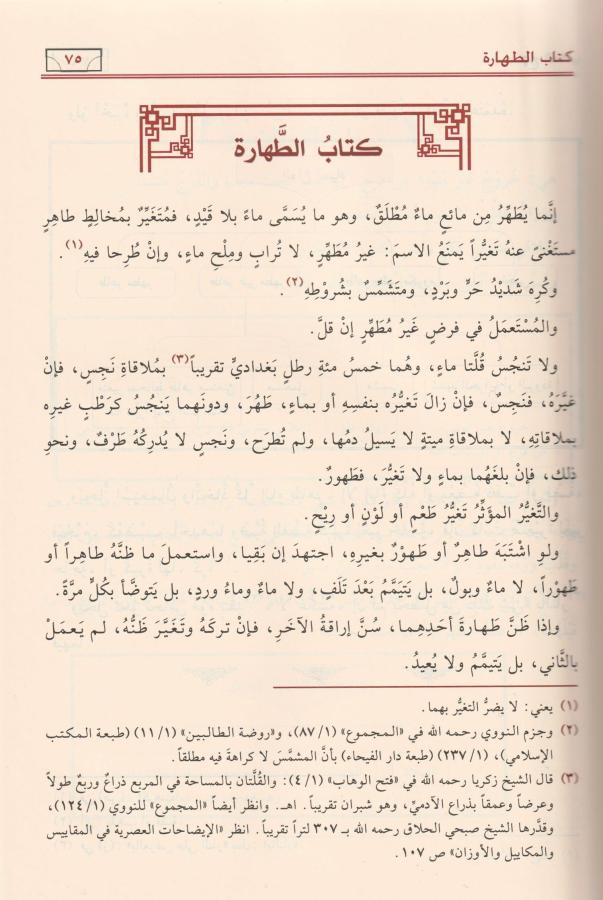 كتاب الطهارة
٧٥
كتابُ الطَّهارة
إنَّما يُطَهِّرُ مِن مائعٍ ماءٌ مُطْلَقٌ، وهو ما يُسَمَّى ماءً بلا قَيْدٍ، فمُتَغَيِّرٌ بمُخالِطٍ طاهِرٍ
مستَغْنىً عنهُ تَغيُّراً يَمنَعُ الاسمَ: غيرُ مُطَهِّرٍ، لا تُرابٍ ومِلْحِ ماءٍ، وإنْ طُرِحا فيهِ(١).
وكُرِهَ شَديْدُ حَرٍّ وبَرْدٍ، ومتَشَمِّسٌ بشُروْطِهِ(٢).
والمُسْتَعمَلُ في فرضٍ غَيرُ مُطَهِّرٍ إنْ قلَّ.
ولا تَنجُسُ قُلَّتا ماءٍ، وهُما خمسُ مئةِ رطلٍ بَغداديٍّ تقريباً(٣) بمُلاقاةِ نَجِسٍ، فإنْ
غيَّرَهُ، فنَجِسٌ، فإنْ زالَ تَغيُّرُه بنفسِهِ أو بماءٍ، طَهُرَ، ودونَهما يَنجُسُ كرَطْبٍ غيرِه
بملاقاتِهِ، لا بملاقاةِ ميتةٍ لا يَسيلُ دمُها، ولم تُطرَح، ونَجسٍ لا يُدرِكُهُ طَرْفٌ، ونحوِ
ذلك، فإنْ بلغَهُما بماءٍ ولا تَغيُّرَ، فطَهورٌ.
والتَّغيُّرُ المؤثِّرُ تَغيُّرُ طَعْمٍ أو لَوْنٍ أو رِيْحٍ.
ولوِ اشْتَبَهَ طاهِرٌ أو طَهوْرٌ بغيرِهِ، اجتهدَ إن بَقِيا، واستعملَ ما ظنَّهُ طاهِراً أو
طَهوْراً، لا ماءٌ وبولٌ، بل يَتيَمَّمُ بَعْدَ تَلَفٍ، ولا ماءٌ وماءُ وردٍ، بل يَتوضَّأ بكُلٍّ مرَّةً.
وإذا ظَنَّ طَهارةَ أحَدِهِما، سُنَّ إراقةُ الآخَرِ، فإنْ تركَهُ وتَغيَّرَ ظنُّهُ، لم يَعمَلْ
بالثَّاني، بل يَتيمَّمُ ولا يُعيدُ.
(١) يعني: لا يضرُّ التغيُّر بهما.
(٢) وجزم النووي رحمه الله في «المجموع» (١/ ٨٧)، و«روضة الطالبين» (١/ ١١) (طبعة المكتب
الإسلامي)، (١/ ٢٣٧) (طبعة دار الفيحاء) بأنَّ المشمَّسَ لا كراهةَ فيه مطلقاً.
(٣) قال الشيخ زكريا رحمه الله في «فتح الوهاب» (١/ ٤): والقُلَّتان بالمساحة في المربع ذراعٌ وربعٌ طولاً
وعرضاً وعمقاً بذراع الآدميِّ، وهو شبران تقريباً. اهـ. وانظر أيضاً «المجموع» للنووي (١/ ١٢٤)،
وقدَّرها الشيخ صبحي الحلاق رحمه الله بـ ٣٠٧ لتراً تقريباً. انظر «الإيضاحات العصرية في المقاييس
والمكاييل والأوزان» ص ١٠٧.